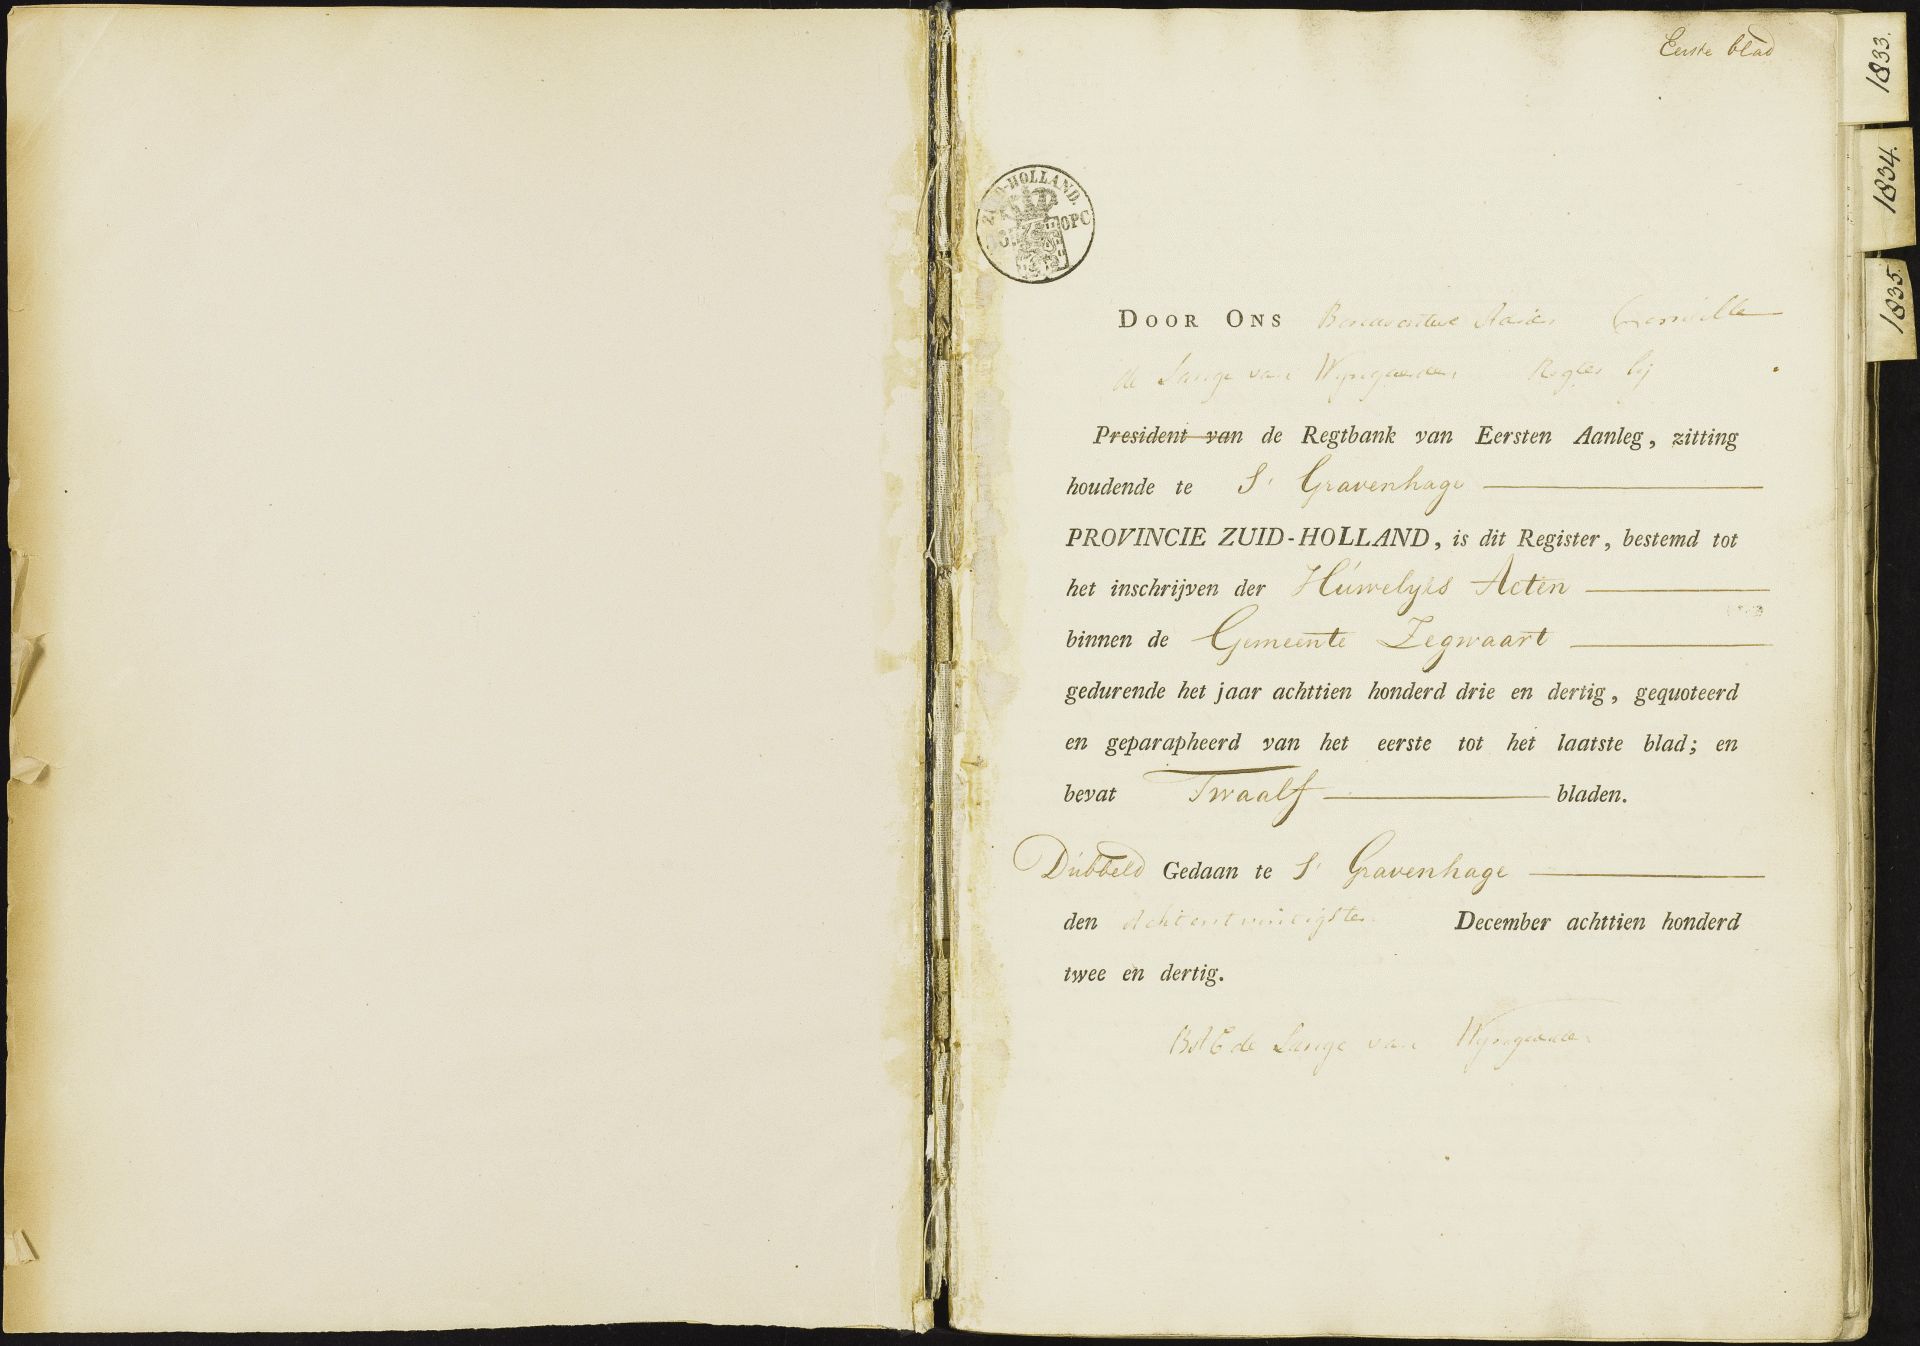 Eerste blad
1833.
1834.
1835.
ZUID-HOLLAND.
OPC
DOOR ONS Bonaventure
de Lange van Wyngaerden Regter bij
President van de Regtbank van Eersten Aanleg, zitting
houdende te S' Gravenhage
PROVINCIE ZUID-HOLLAND, is dit Register, bestemd tot
het inschrijven der Húwelyks Acten
binnen de Gemeente Zegwaart
gedurende het jaar achttien honderd drie en dertig, gequoteerd
en geparapheerd van het eerste tot het laatste blad; en
bevat Twaalf bladen.
Dúbbeld Gedaan te S' Gravenhage
den achtentwintigsten December achttien honderd
twee en dertig.
de Lange van Wyngaerden